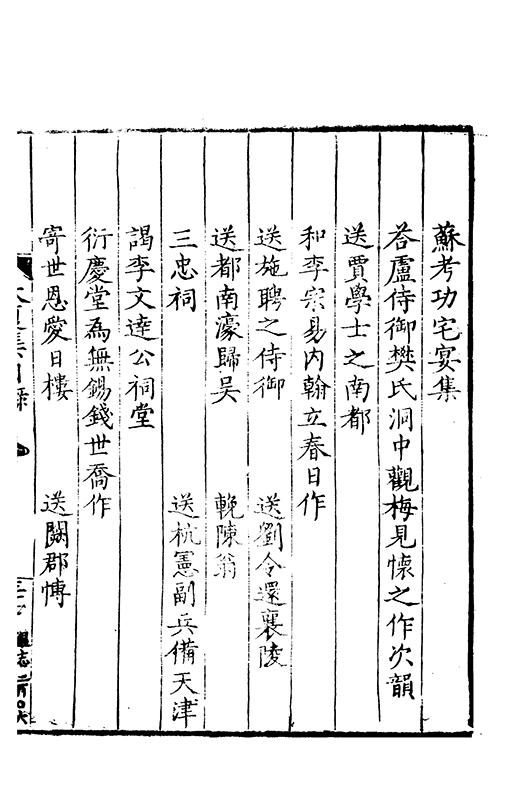 蘇考功宅宴集
荅盧侍御樊氏洞中觀梅見懷之作次韻
送賈學士之南都
和李宗易内翰立春日作
送施聘之侍御 送劉令還襄陵
送都南濠歸吳 輓陳翁
三忠祠 送杭憲副兵備天津
謁李文達公祠堂
衍慶堂為無錫錢世喬作
寄世恩愛日樓 送闞郡愽
集目錄